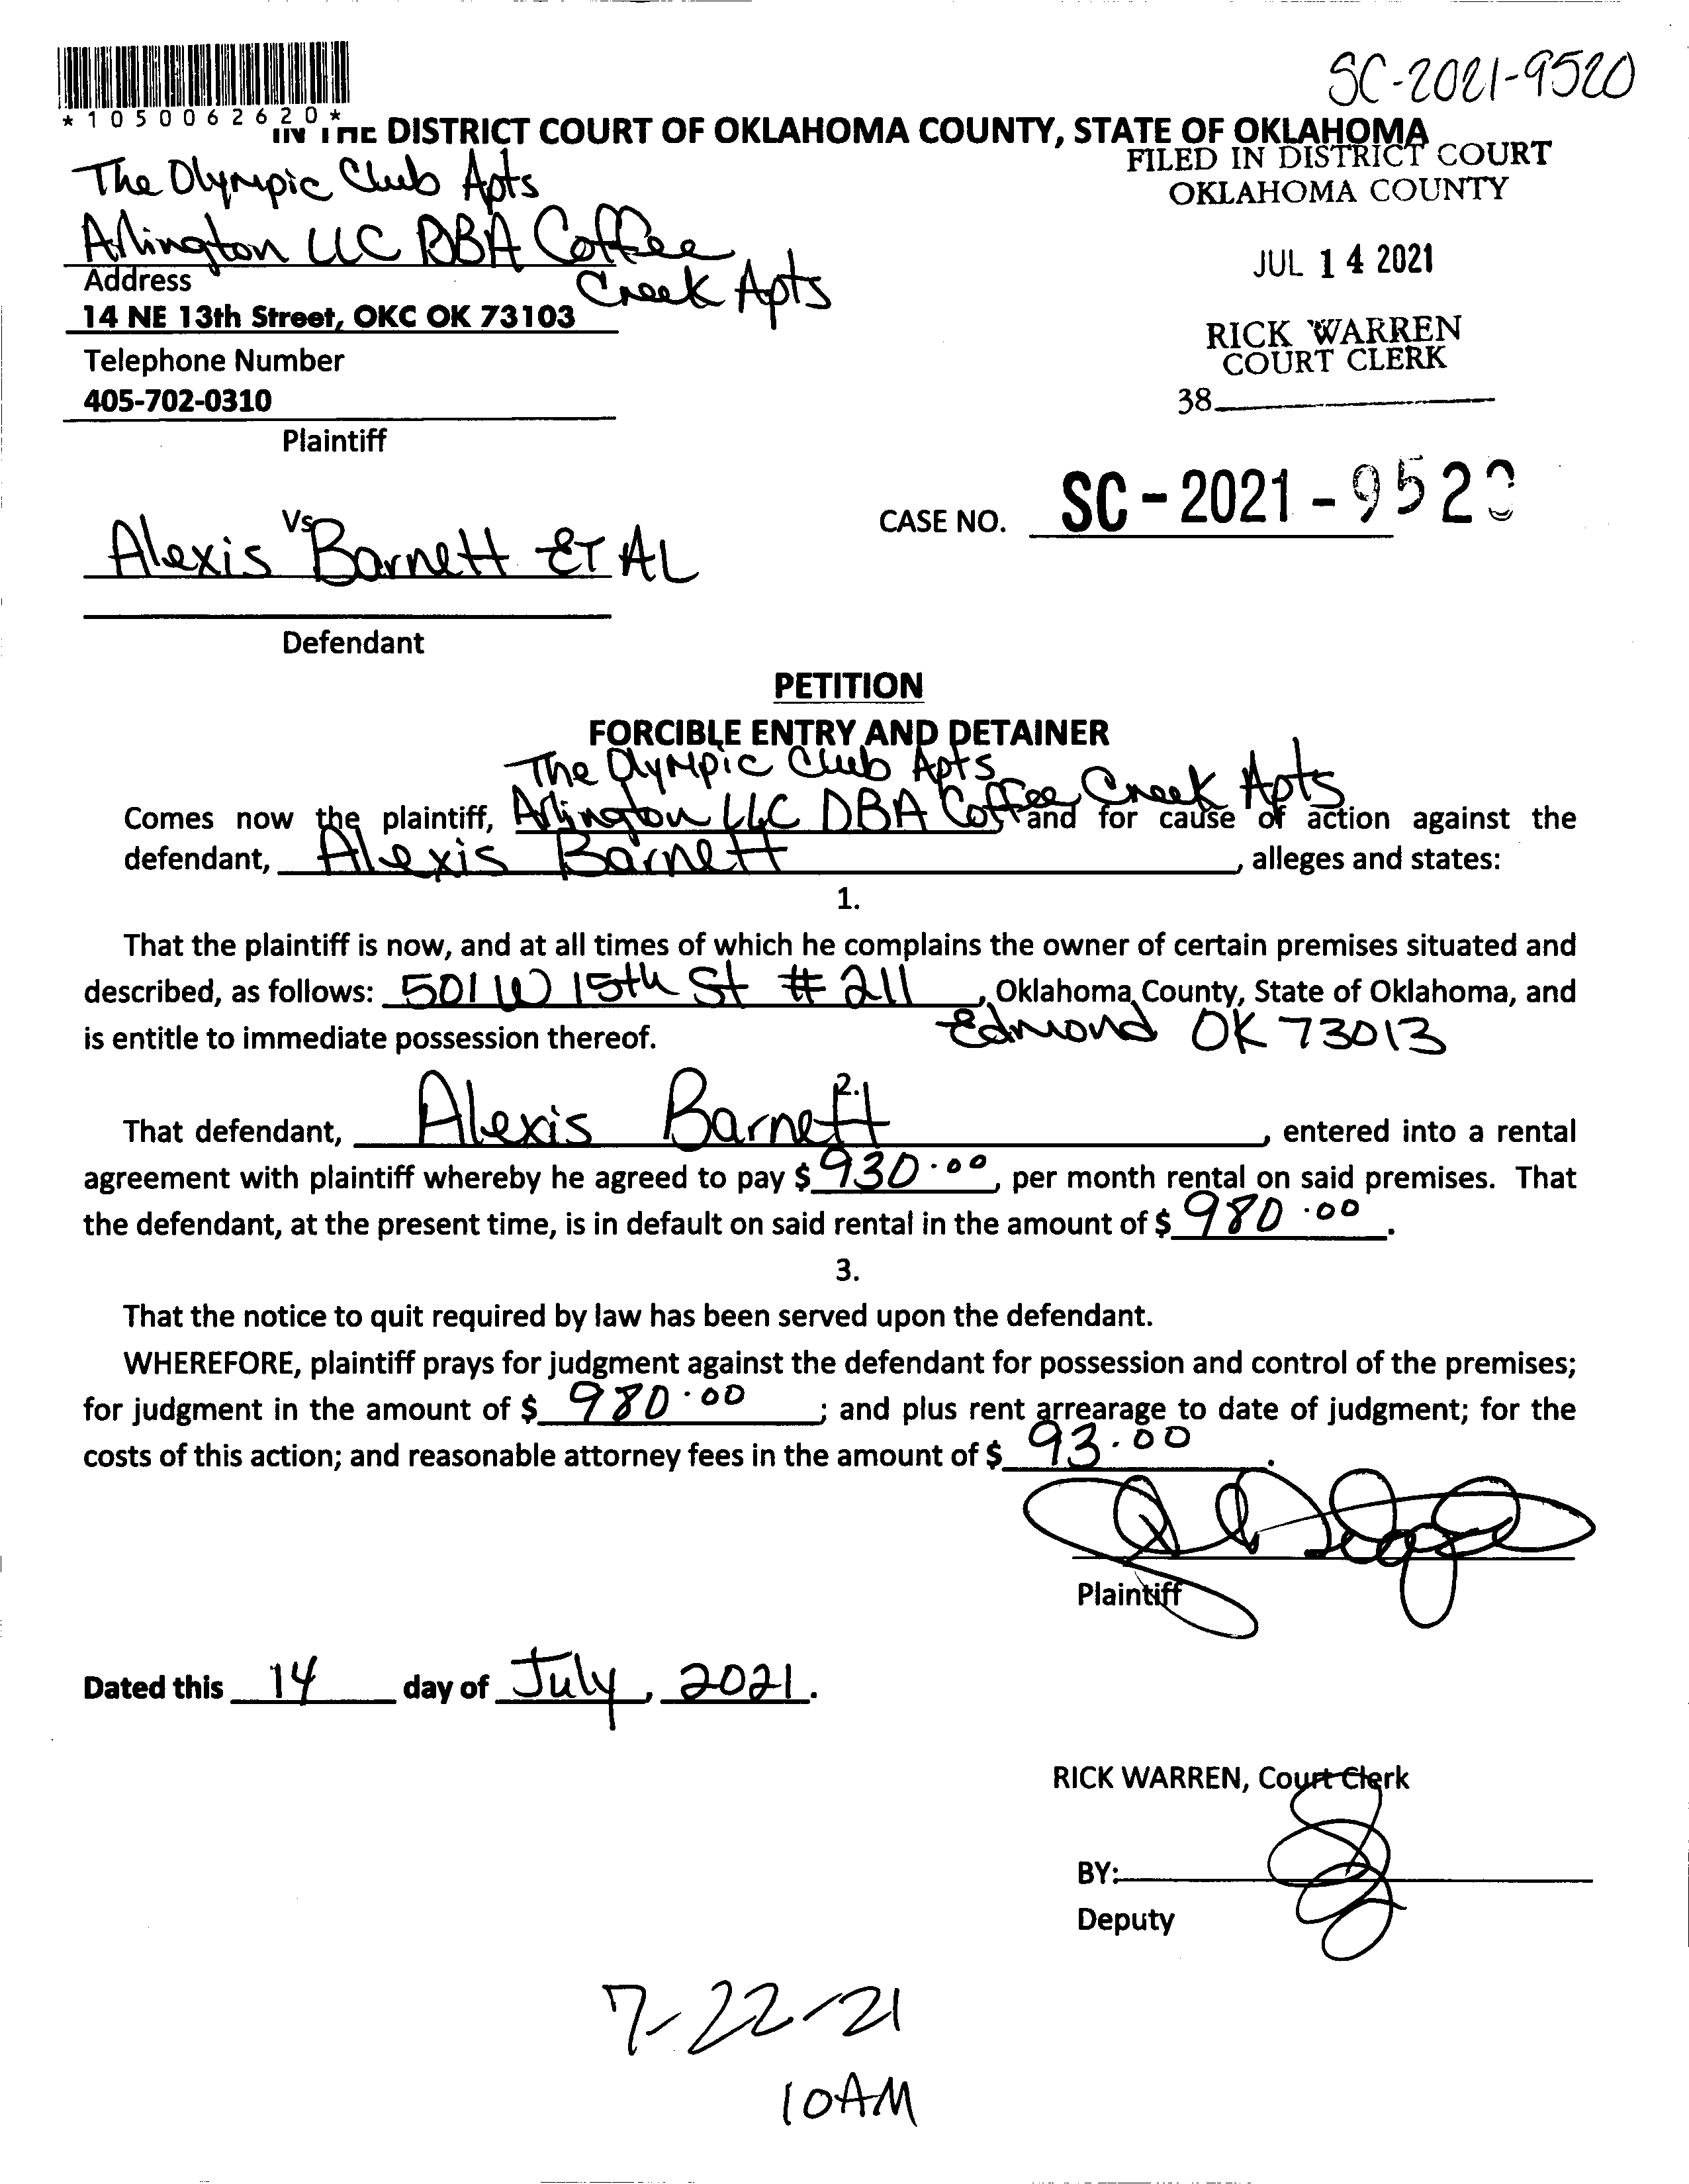 SC-2021-9520
*1050062620*
IN THE DISTRICT COURT OF OKLAHOMA COUNTY, STATE OF OKLAHOMA
FILED IN DISTRICT COURT
OKLAHOMA COUNTY
JUL 14 2021
RICK WARREN
COURT CLERK
38
The Olympic Club Apts
Arlington LLC DBA Coffee
Creek Apts
Address
14 NE 13th Street, OKC OK 73103
Telephone Number
405-702-0310
Plaintiff
Vs
CASE NO. SC-2021-9520
Alexis Barnett ET AL
Defendant
PETITION
FORCIBLE ENTRY AND DETAINER
The Olympic Club Apts
Comes now the plaintiff, Arlington LLC DBA Coffee Creek Apts and for cause of action against the
defendant, Alexis Barnett, alleges and states:
1.
That the plaintiff is now, and at all times of which he complains the owner of certain premises situated and
described, as follows: 501 W 15th St # 211, Oklahoma County, State of Oklahoma, and
Edmond OK 73013
is entitle to immediate possession thereof.
2.
That defendant, Alexis Barnett, entered into a rental
agreement with plaintiff whereby he agreed to pay $ 930.00, per month rental on said premises. That
the defendant, at the present time, is in default on said rental in the amount of $ 980.00.
3.
That the notice to quit required by law has been served upon the defendant.
WHEREFORE, plaintiff prays for judgment against the defendant for possession and control of the premises;
for judgment in the amount of $ 980.00; and plus rent arrearage to date of judgment; for the
costs of this action; and reasonable attorney fees in the amount of $ 93.00.
Plaintiff
Dated this 14 day of July, 2021.
RICK WARREN, Court Clerk
BY:
Deputy
7-22-21
10AM